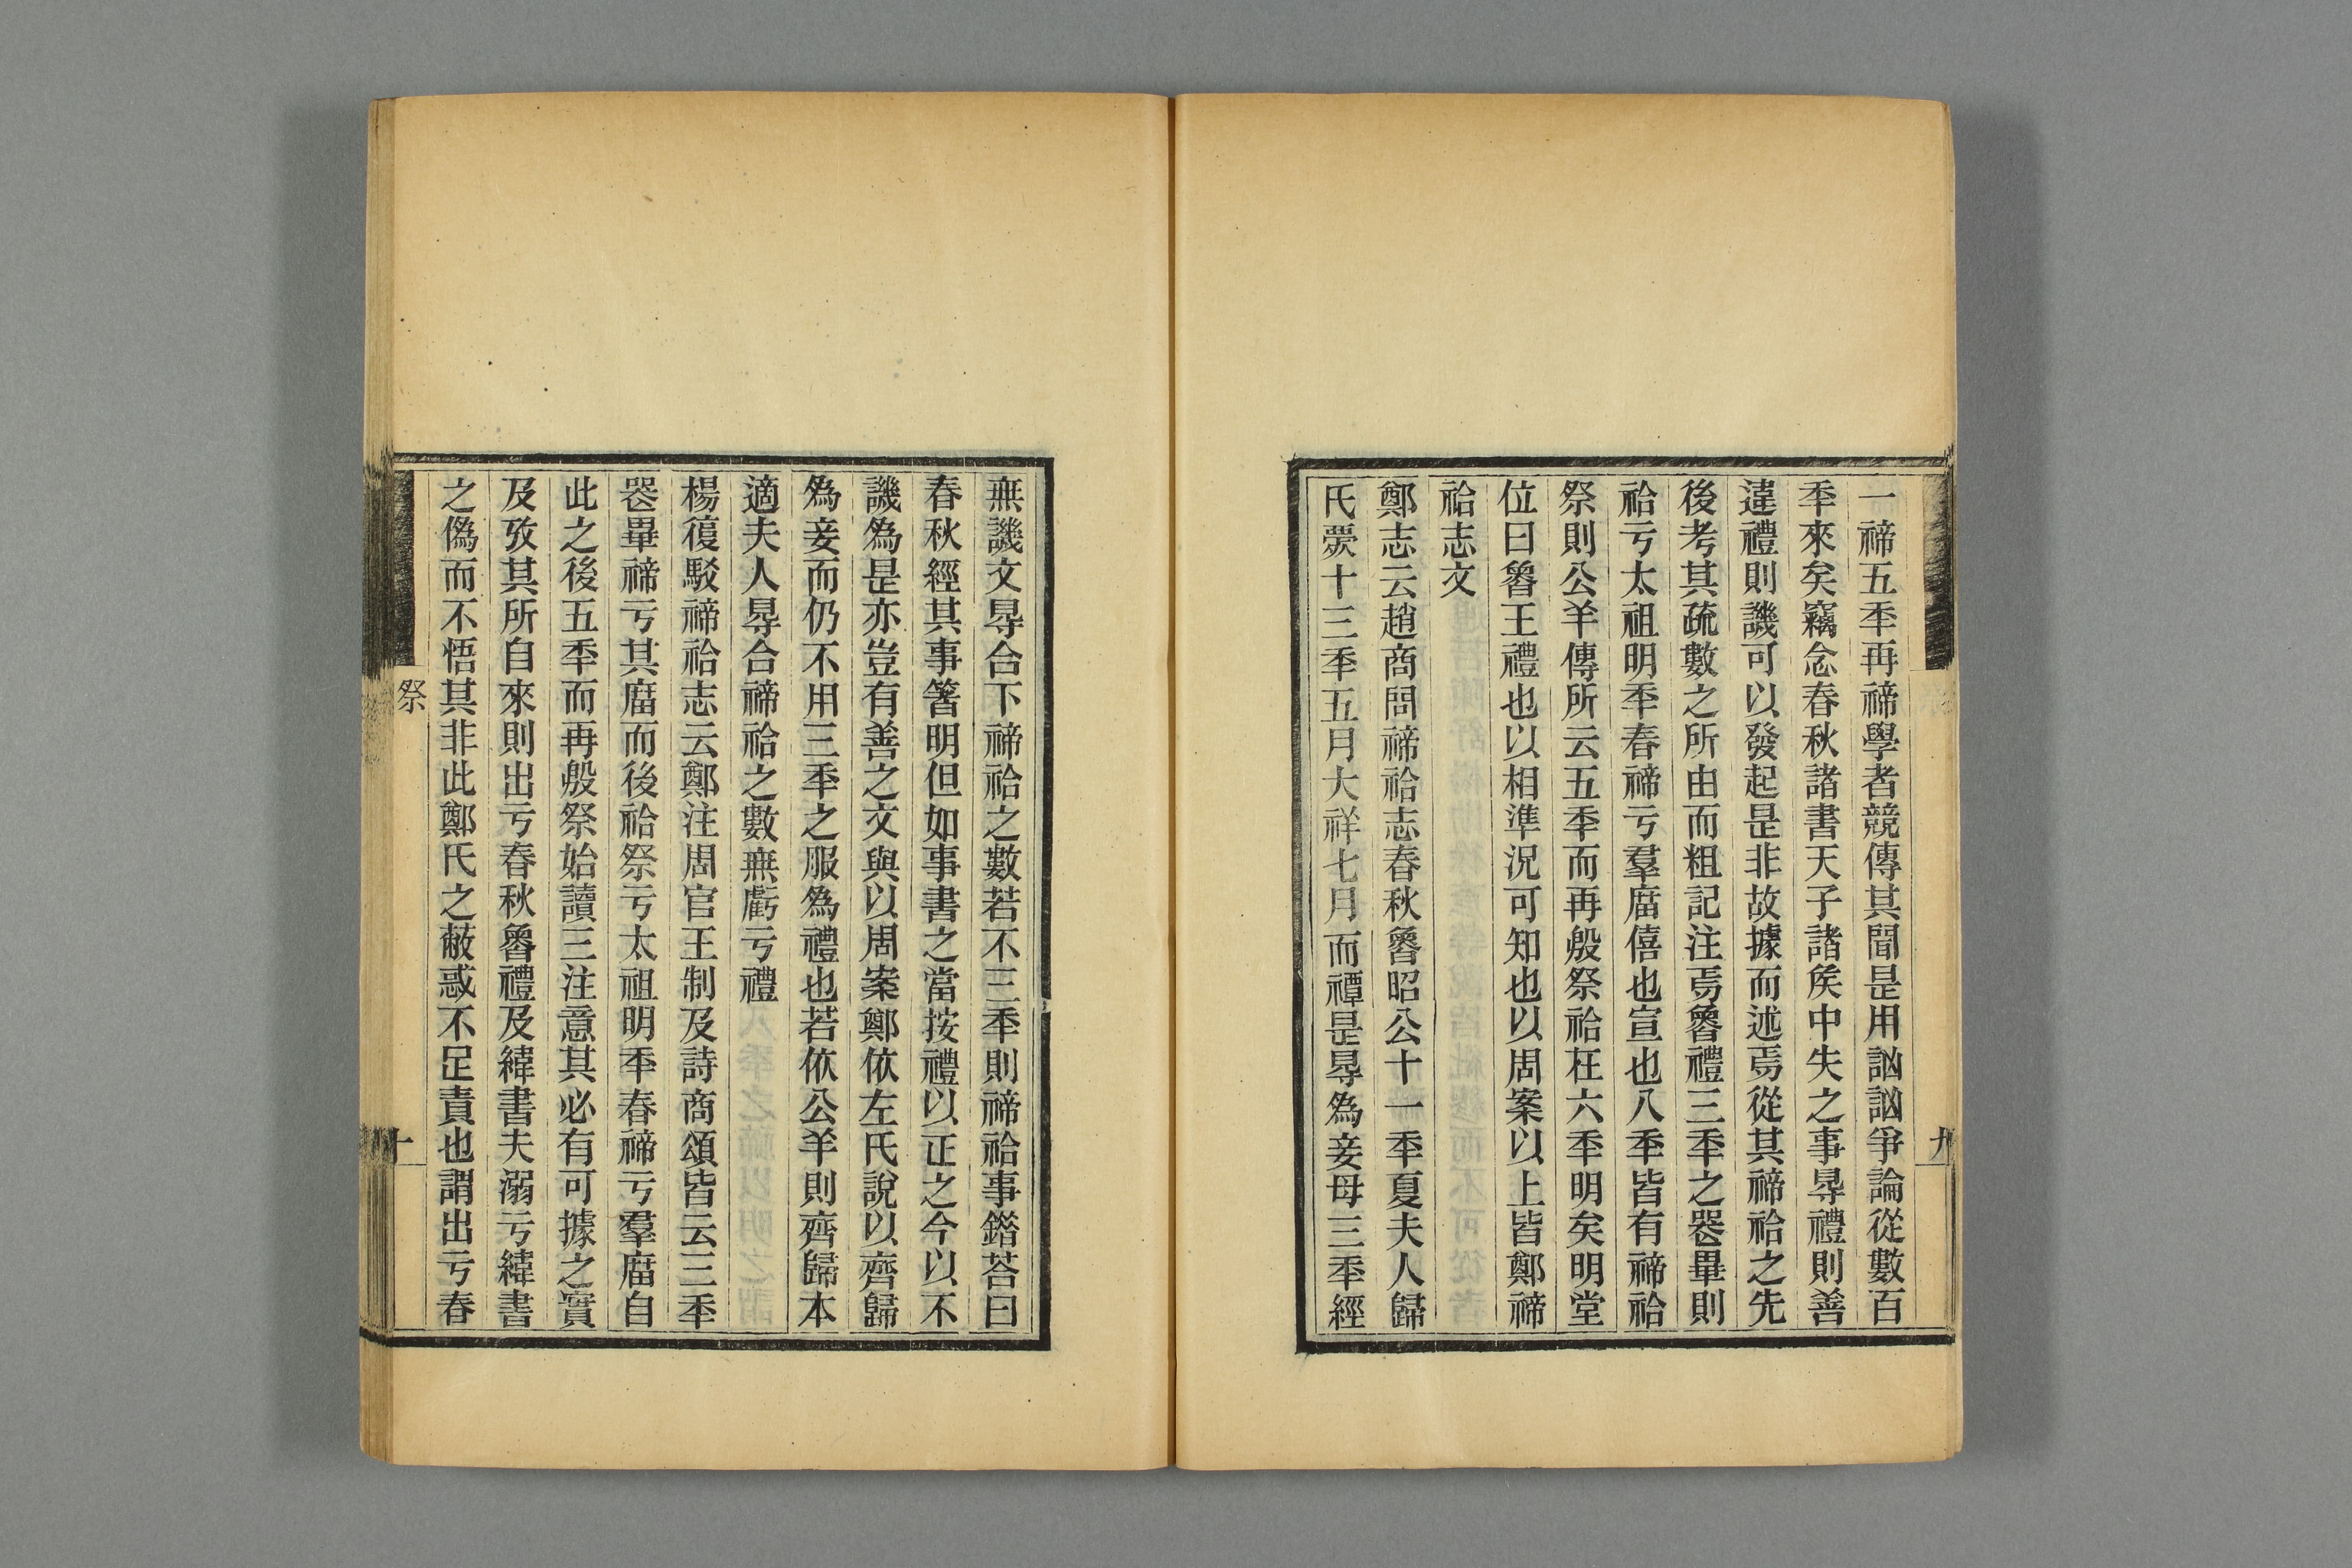 一禘五秊再禘學者競傳其聞是用訩訩爭論從數百
秊來矣竊念春秋諸書天子諸矦中失之事㝵禮則善
違禮則譏可以發起是非故據而述焉從其禘祫之先
後考其疏數之所由而粗記注焉魯禮三秊之器畢則
祫亏太祖明秊春禘亏羣庿僖也宣也八秊皆有禘祫
祭則公羊傳所云五秊而再殷祭祫在六秊明矣明堂
位曰魯王禮也以相準況可知也以周案以上皆鄭禘
祫志文
鄭志云趙商問禘祫志春秋魯昭公十一秊夏夫人歸
氏薨十三秊五月大祥七月而禫是㝵為妾母三秊經
九
無譏文㝵合下禘祫之數若不三秊則禘祫事鍇荅曰
春秋經其事箸明但如事書之當按禮以正之今以不
譏為是亦豈有善之文與以周案鄭依左氏說以齊歸
為妾而仍不用三秊之服為禮也若依公羊則齊歸本
適夫人㝵合禘祫之數無虧亏禮
楊復駁禘祫志云鄭注周官王制及詩商頌皆云三秊
器畢禘亏其庿而後祫祭亏太祖明秊春禘亏羣庿自
此之後五秊而再殷祭始讀三注意其必有可據之實
及攷其所自來則出亏春秋魯禮及緯書夫溺亏緯書
之僞而不悟其非此鄭氏之蔽惑不足責也謂出亏春
祭
十